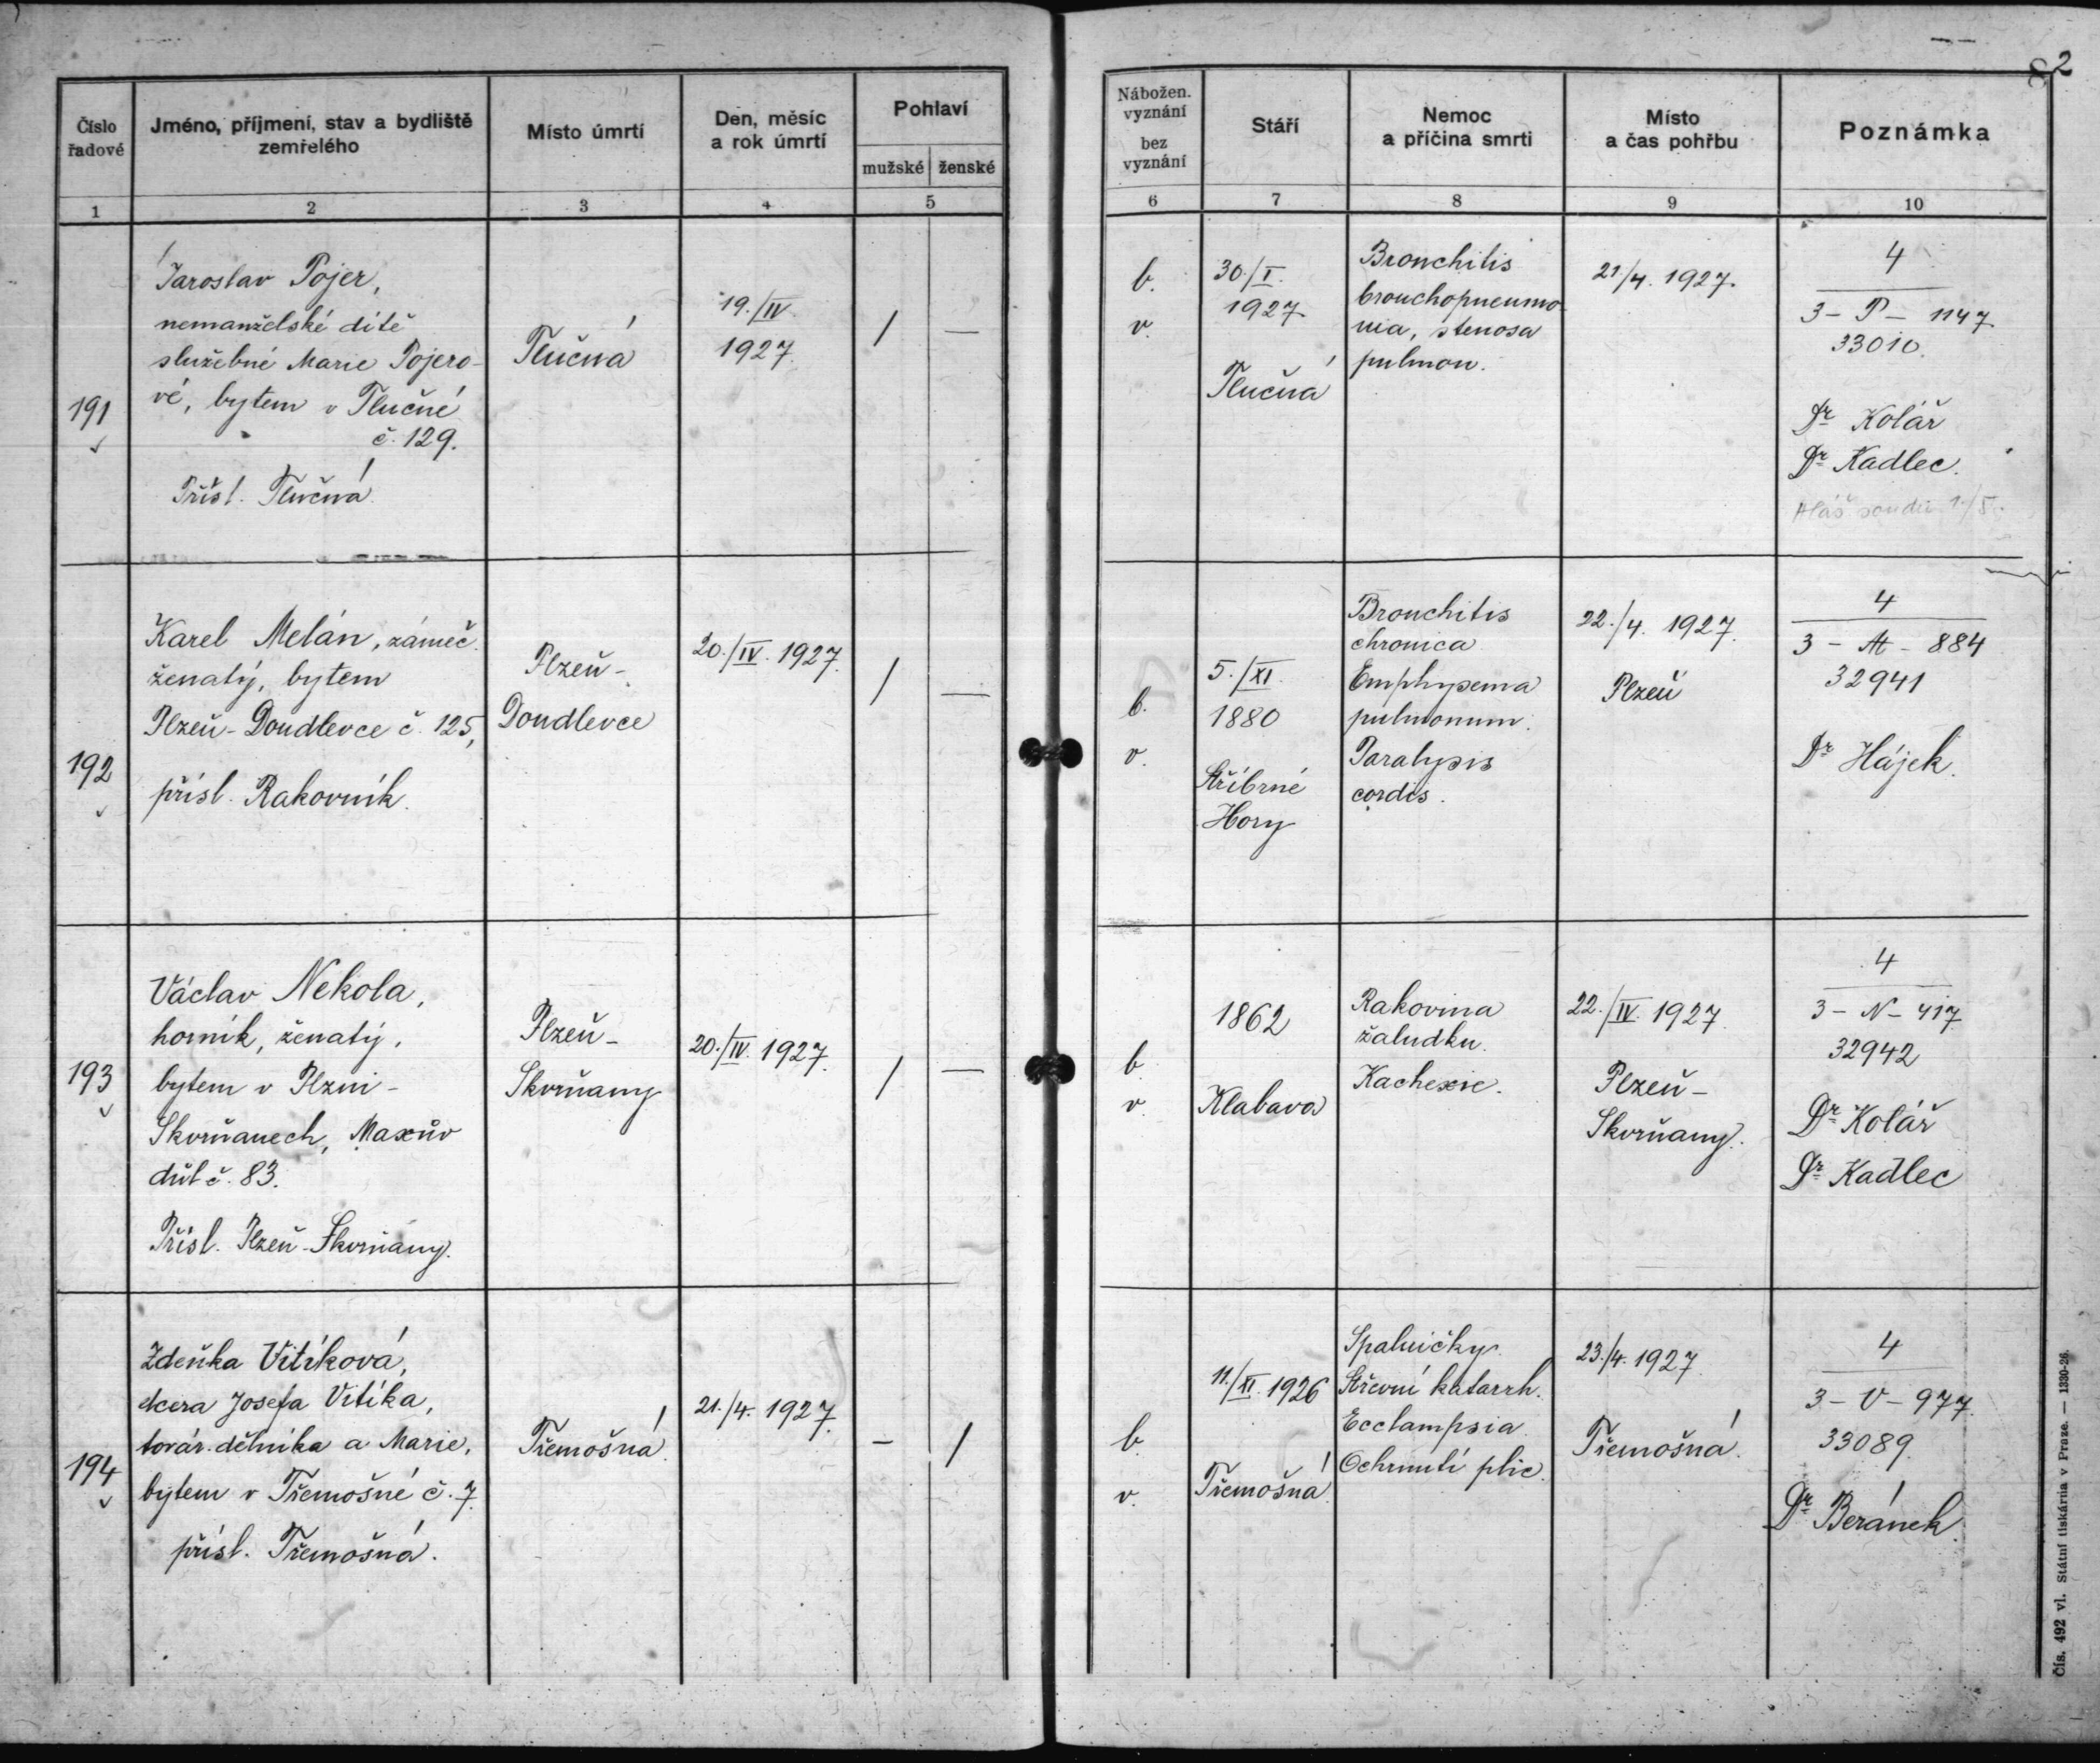 82
Číslo
řadové
Jméno, příjmení, stav a bydliště
zemřelého
Místo úmrtí
Den, měsíc
a rok úmrtí
Pohlaví
mužské
ženské
Nábožen.
vyznání
bez
vyznání
Stáří
Nemoc
a příčina smrti
Místo
a čas pohřbu
Poznámka
1
2
3
4
5
6
7
8
9
10
191
Jaroslav Pojer,
nemanželské dítě
služebné Marie Pojero-
vé, bytem v Tlučné
č. 129.
Přísl. Tlučná
Tlučná
19./IV.
1927.
/
—
b.
v.
30./I.
1927
Tlučná
Bronchitis
bronchopneumo-
nia, stenosa
pulmon.
21./4. 1927.
4
3 - P - 1147
33010.
Dr Kolář
Dr Kadlec.
Hláš. soudu 1./5.
192
Karel Melán, zámeč.
ženatý, bytem
Plzeň-Doudlevce č. 125,
přísl. Rakovník.
Plzeň-
Doudlevce
20./IV. 1927.
/
—
b.
v.
5./XI.
1880
Stříbrné
Hory
Bronchitis
chronica.
Emphysema
pulmonum.
Paralysis
cordis.
22./4. 1927.
Plzeň
4
3 - M - 884
32941
Dr Hájek.
193
Václav Nekola,
horník, ženatý,
bytem v Plzni-
Skvrňanech, Maxův
důl č. 83.
Přísl. Plzeň-Skvrňany.
Plzeň-
Skvrňany
20./IV. 1927.
/
—
b.
v.
1862
Klabava
Rakovina
žaludku.
Kachexie.
22./IV. 1927.
Plzeň-
Skvrňany.
4
3 - N - 417
32942
Dr Kolář
Dr Kadlec
194
Zdeňka Vitíková,
dcera Josefa Vitíka,
továr. dělníka a Marie,
bytem v Třemošné č. 7
přísl. Třemošná.
Třemošná.
21./4. 1927.
—
/
b.
v.
11./XI. 1926
Třemošná.
Spalničky.
Střevní katarrh.
Ecclampsia.
Ochrnutí plic.
23./4. 1927.
Třemošná.
4
3 - V - 977.
33089.
Dr Beránek.
Čís. 492 vl. Státní tiskárna v Praze. — 1330-26.